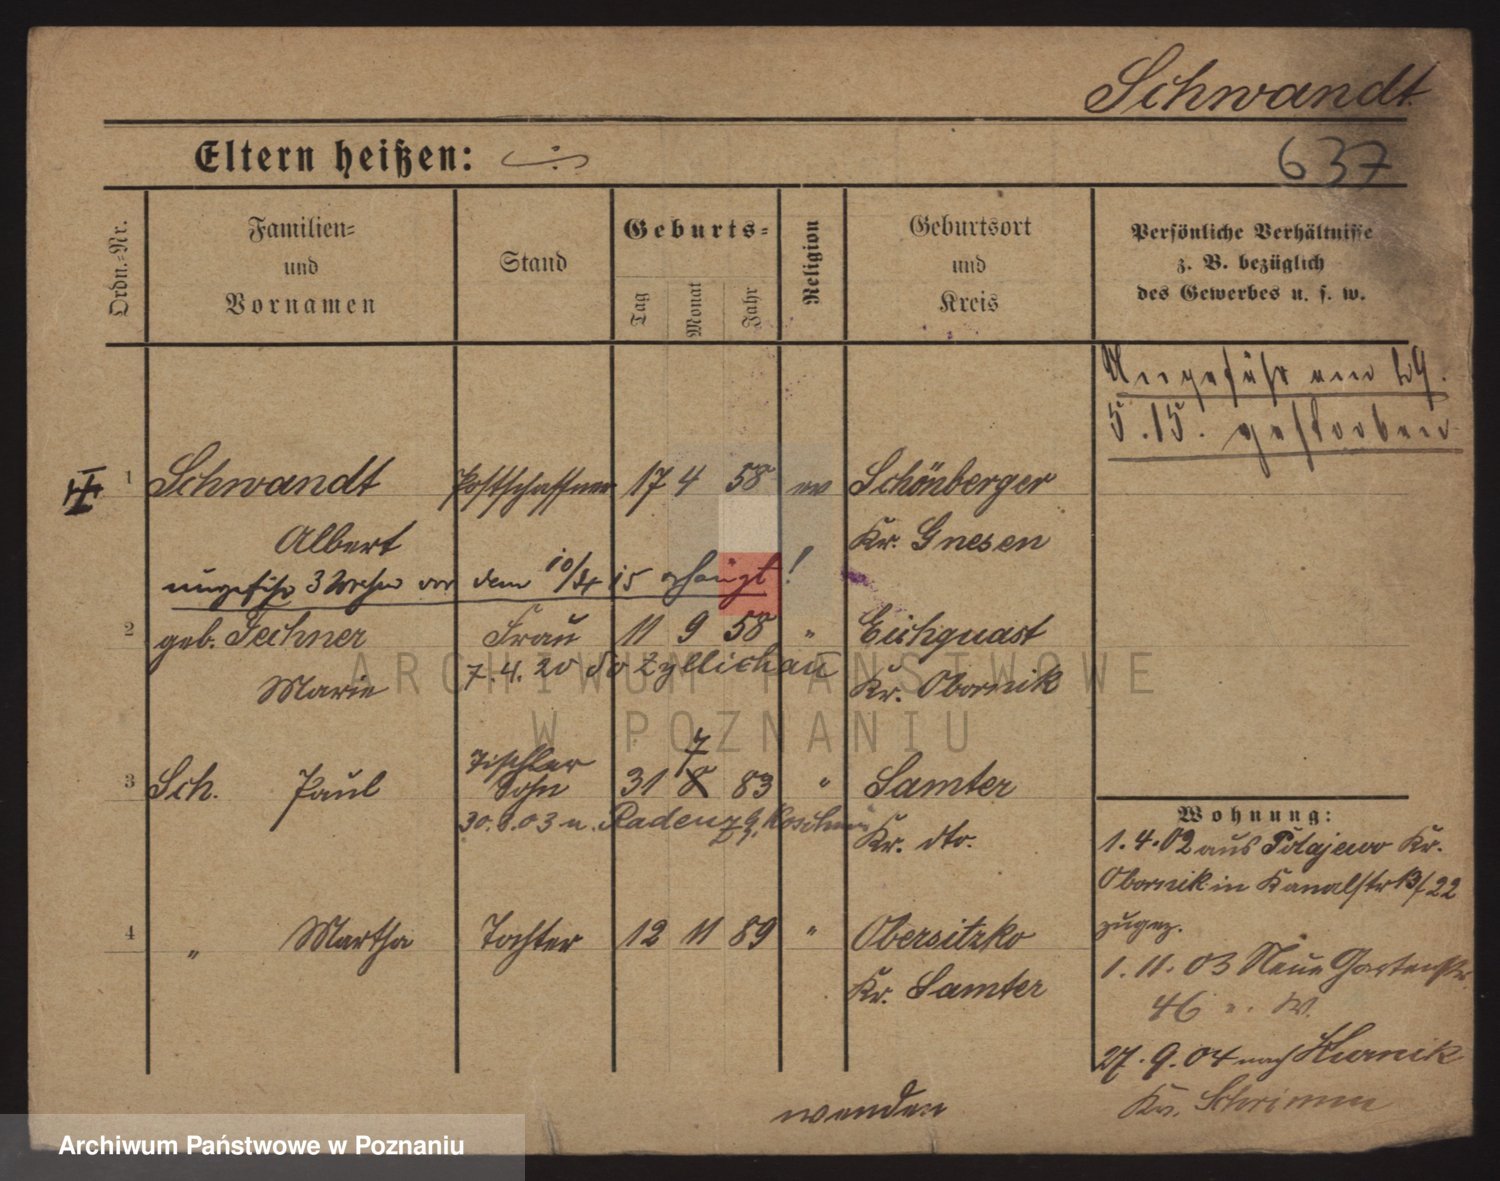 Schwandt
Eltern heißen:
637
Ordn.-Nr.
Familien-
und
Vornamen
Stand
Geburts-
Tag
Monat
Jahr
Religion
Geburtsort
und
Kreis
Persönliche Verhältnisse
z. B. bezüglich
des Gewerbes u. s. w.
Ungefähr am
5.15. gestorben
1 Schwandt Postschaffner 17 4 58 ev Schönberger
Albert Kr. Gnesen
ungefähr 3 Wochen vor dem 10/4 15 !
2 geb. Techner Frau 11 9 58 " Eichquast
7.4.20 Züllichau
Marie Kr. Obornik
7
Tischler
3 Sch. Paul Sohn 31 8 83 " Samter
30. 03 n. Radenz Koschmin
Kr. dto.
4 " Martha Tochter 12 11 89 " Obersitzko
Kr. Samter
Wohnung:
1.4.02 aus Polajewo Kr.
Obornik in Kanalstr 13/22
zugez.
1.11.03 Neue Gartenstr.
46 W.
27.9.04 nach Kurnik
Kr. Schrimm
wenden
ARCHIWUM PAŃSTWOWE
W POZNANIU
Archiwum Państwowe w Poznaniu